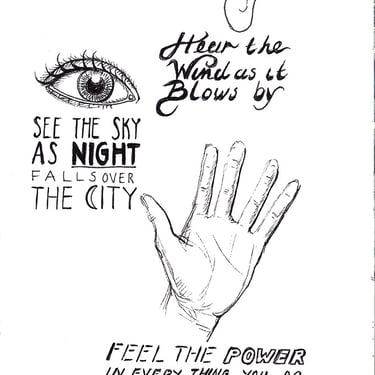 Hear the
Wind as it
Blows by
SEE THE SKY
AS NIGHT
FALLS OVER
THE CITY
FEEL THE POWER
IN EVERY THING YOU DO